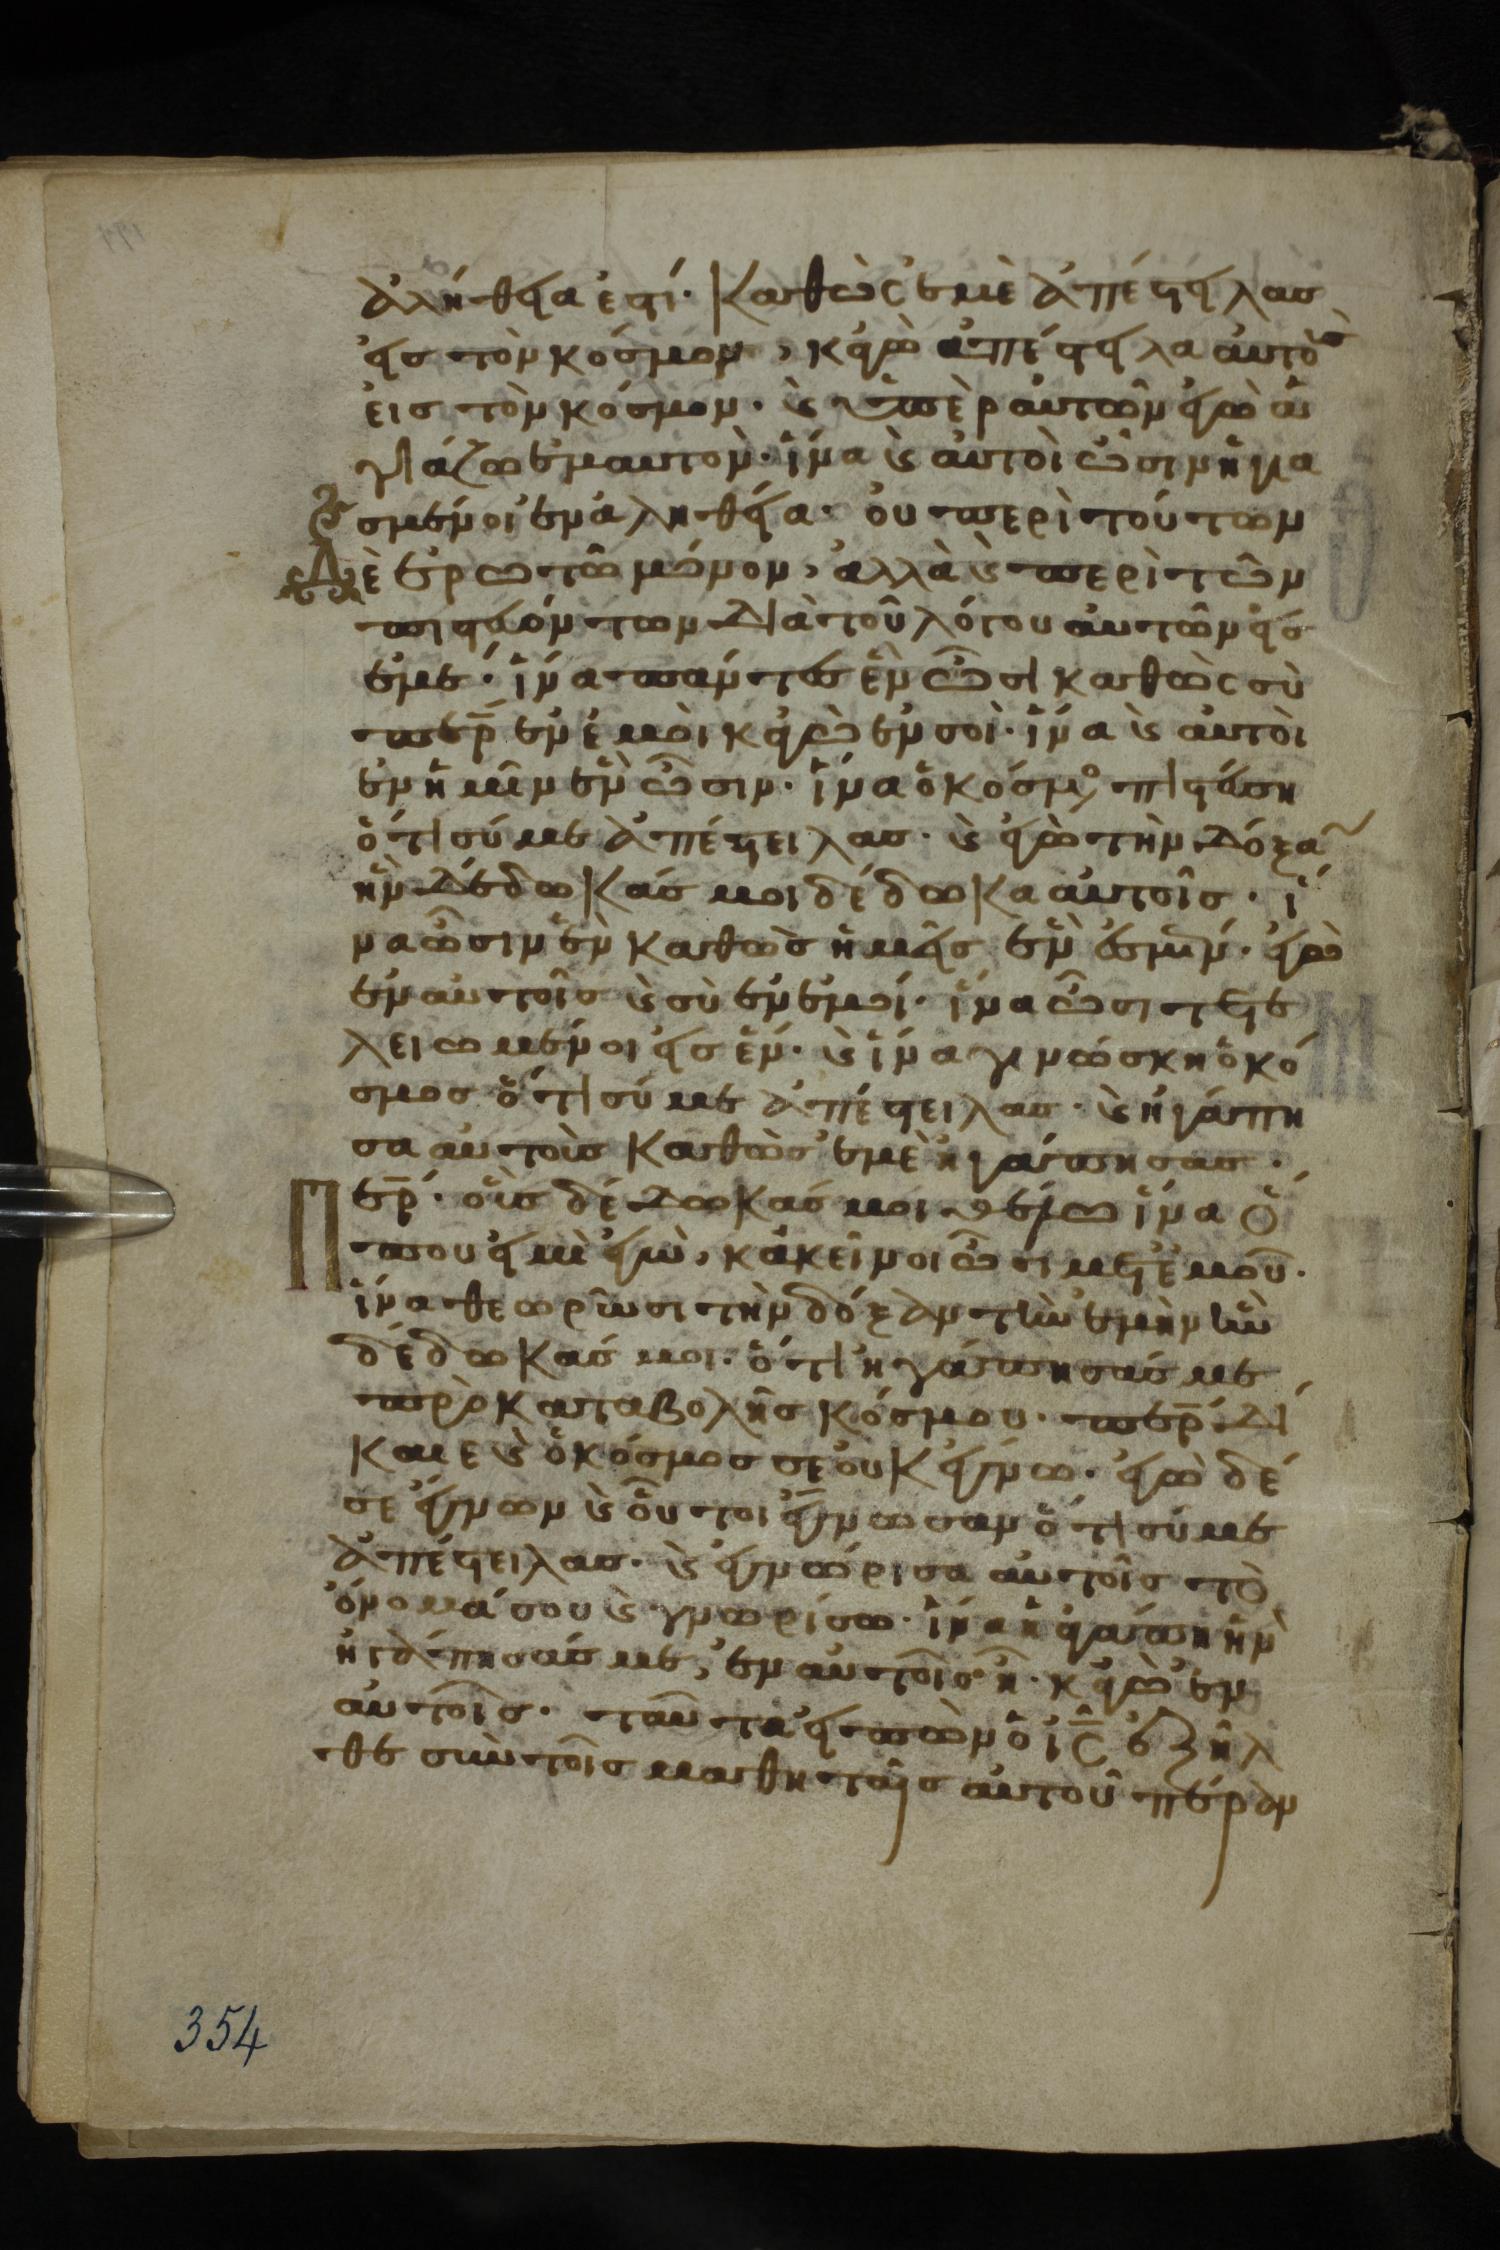 ἀλήθεια ἐστί· Καθὼς ἐμὲ ἀπέστειλας
εἰς τὸν κόσμον, κἀγὼ ἀπέστειλα αὐτοὺς
εἰς τὸν κόσμον· ϗ ὑπὲρ αὐτῶν ἐγὼ ἁ
γιάζω ἐμαυτόν· ἵνα ϗ αὐτοὶ ὦσιν ἡγια
σμένοι ἐν ἀληθεία· οὐ περὶ τούτων
Δὲ ἐρωτῶ μόνον, ἀλλὰ ϗ περὶ τῶν
πιστευόντων διὰ τοῦ λόγου αὐτῶν εἰς
ἐμέ· ἵνα πάντες ἓν ὦσι καθὼς σὺ
περ ἐν ἐμοὶ κἀγὼ ἐν σοὶ· ἵνα ϗ αὐτοὶ
ἐν ἡμῖν ἓν ὦσιν· ἵνα ὁ κόσμος πιστεύση
ὅτι σύ με ἀπέστειλας· ϗ ἐγὼ τὴν δόξαν
ἣν δέδωκάς μοι δέδωκα αὐτοῖς· ἵ
να ὦσιν ἓν καθὼς ἡμεῖς ἓν ἐσμέν· ἐγὼ
ἐν αὐτοῖς ϗ σὺ ἐν ἐμοί· ἵνα ὦσι τετε
λειωμένοι εἰς ἕν· ϗ ἵνα γινώσκη ὁ κό
σμος ὅτι σύ με ἀπέστειλας· ϗ ἠγάπη
σα αὐτοὺς καθὼς ἐμὲ ἠγάπησας·
Περ· οὓς δέδωκάς μοι θέλω ἵνα ὅ
που εἰμὶ ἐγὼ, κἀκεῖνοι ὦσι μετ' ἐμοῦ·
ἵνα θεωρῶσι τὴν δόξαν τὴν ἐμὴν ἣν
δέδωκάς μοι· ὅτι ἠγάπησάς με
πρὸ καταβολῆς κόσμου· περ δί
καιε ϗ ὁ κόσμος σε οὐκ ἔγνω· ἐγὼ δέ
σε ἔγνων ϗ οὗτοι ἔγνωσαν ὅτι σύ με
ἀπέστειλας· ϗ ἐγνώρισα αὐτοῖς τὸ
ὄνομά σου ϗ γνωρίσω· ἵνα ἡ ἀγάπη ἣν
ἠγάπησάς με, ἐν αὐτοῖς ἦ· κἀγὼ ἐν
αὐτοῖς· ταῦτα εἰπὼν ὁ ις ἐξῆλ
θε σὺν τοῖς μαθηταῖς αὐτοῦ πέραν
354